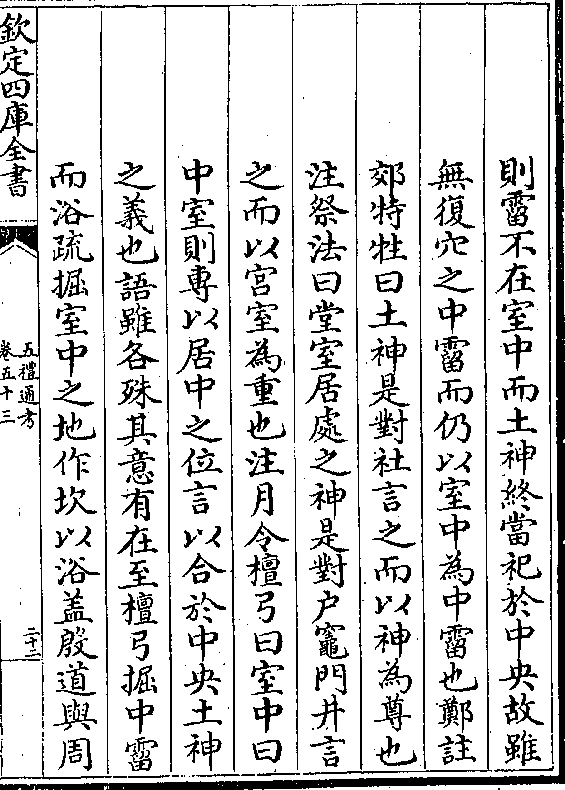 則霤不在室中而土神終當祀於中央故雖
無復穴之中霤而仍以室中為中霤也鄭註
郊特牲曰土神是對社言之而以神為尊也
注祭法曰堂室居處之神是對户竈門井言
之而以宫室為重也注月令檀弓曰室中曰
中室則専以居中之位言以合於中央土神
之義也語雖各殊其意有在至檀弓掘中霤
而浴疏掘室中之地作坎以浴盖殷道與周
欽定四庫全書
五禮通考
卷五十三
二十二